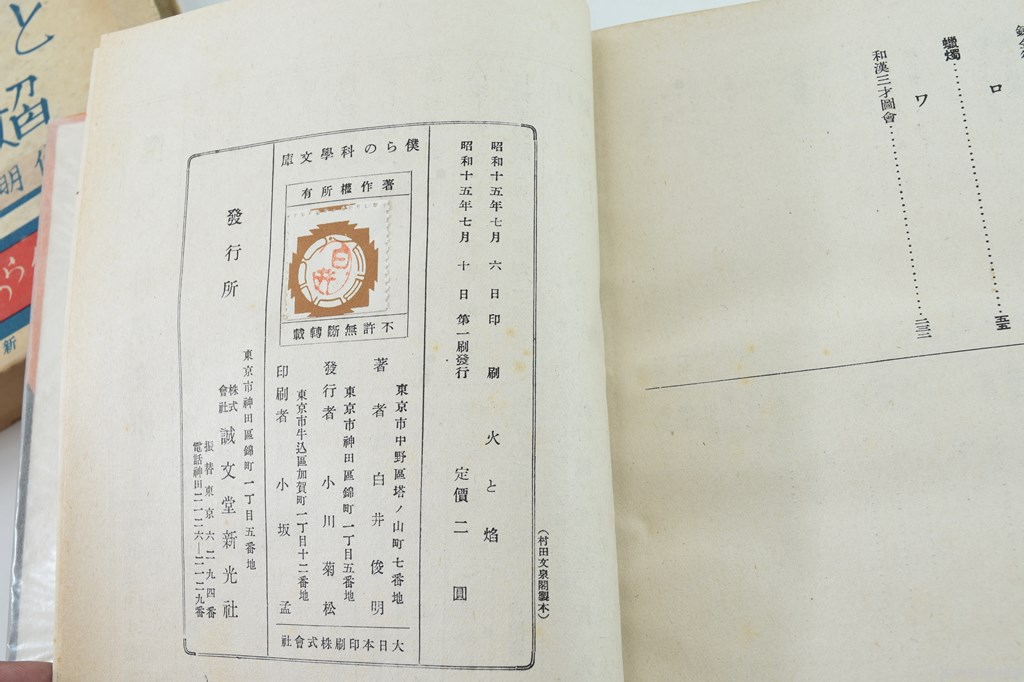 ロ
蠟燭……五五
ワ
和漢三才圖會……二三三
昭和十五年七月 六 日 印 刷
昭和十五年七月 十 日 第一刷發行
火と焰
定價二圓
僕らの科學文庫
著作權所有
白井
不許無斷轉載
著者
東京市中野區塔ノ山町七番地
白井俊明
發行者
東京市神田區錦町一丁目五番地
小川菊松
印刷者
東京市牛込區加賀町一丁目十二番地
小坂孟
大日本印刷株式會社
發行所
東京市神田區錦町一丁目五番地
株式會社 誠文堂新光社
振替東京六二九四番
電話神田二一二六—二一二九番
（村田文泉閣製本）
と
焰
明
新